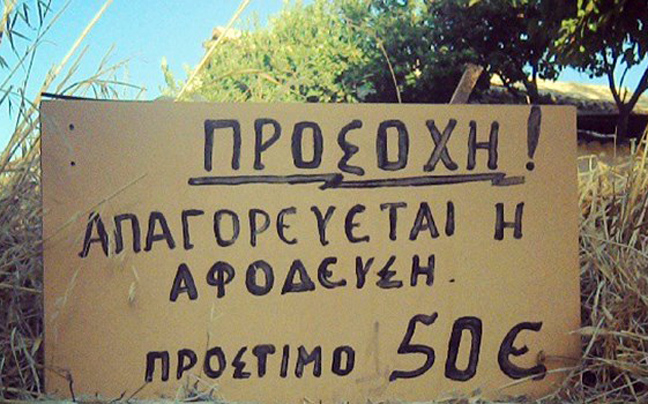 ΠΡΟΣΟΧΗ!
ΑΠΑΓΟΡΕΥΕΤΑΙ Η
ΑΦΟΔΕΥΣΗ.
ΠΡΟΣΤΙΜΟ 50€